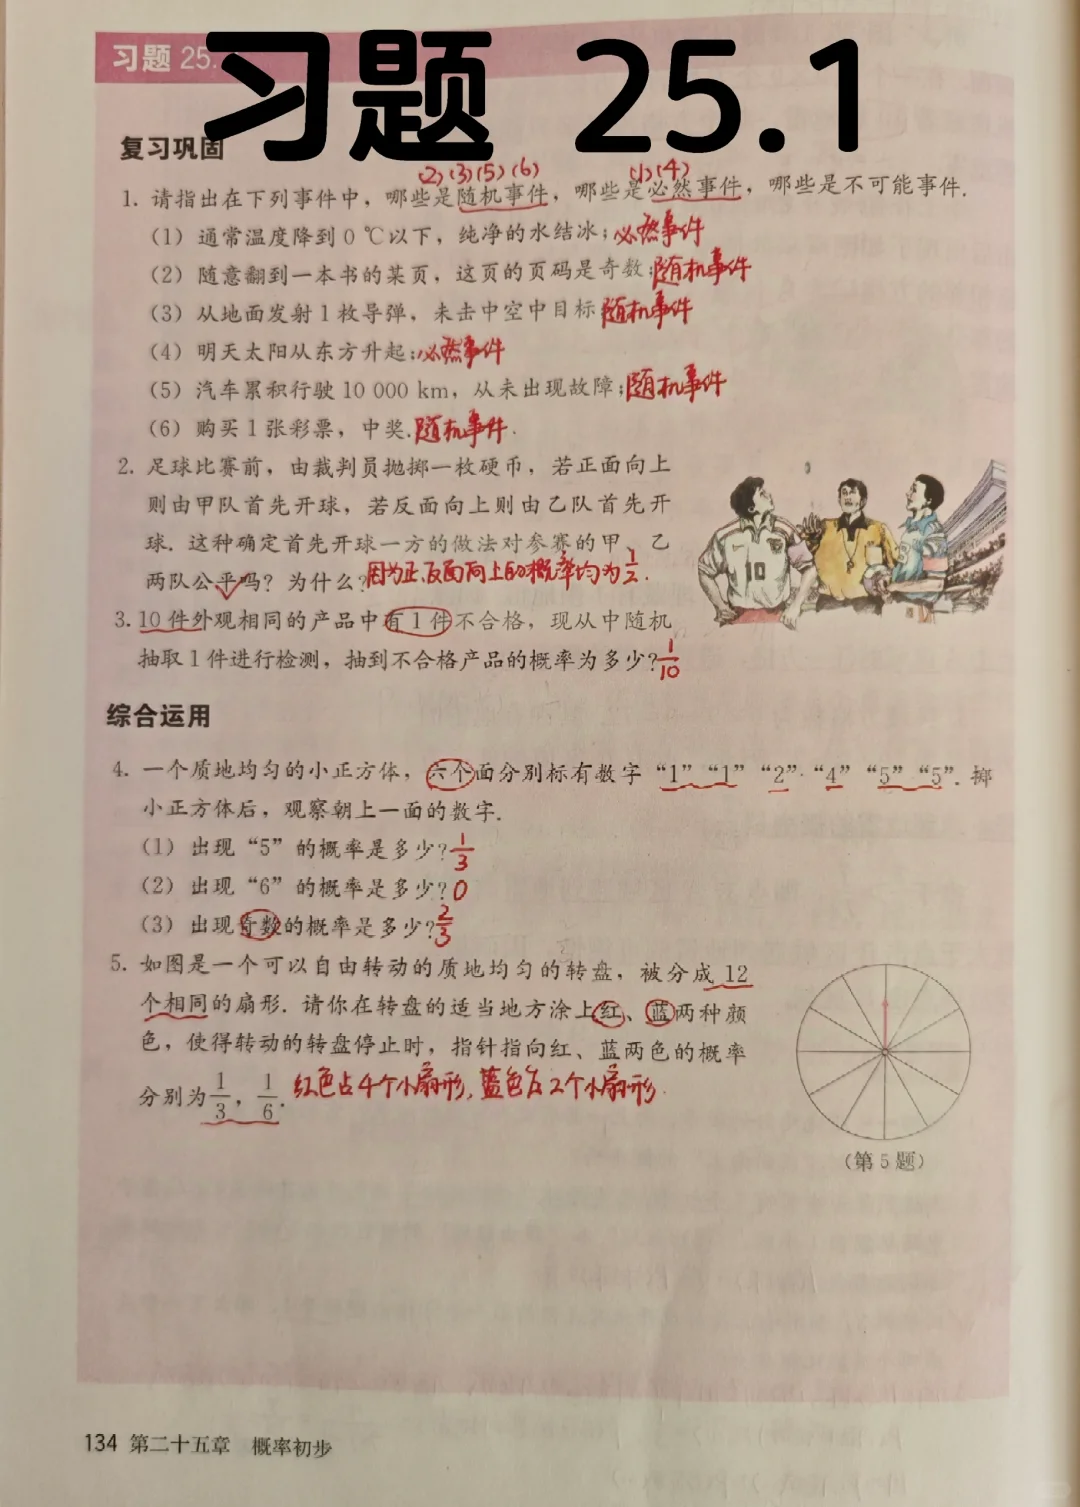 习题 25.1
习题 25.
复习巩固
(2)(3)(5)(6) (1)(4)
1. 请指出在下列事件中，哪些是随机事件，哪些是必然事件，哪些是不可能事件.
(1) 通常温度降到 0 ℃以下，纯净的水结冰；必然事件
(2) 随意翻到一本书的某页，这页的页码是奇数；随机事件
(3) 从地面发射 1 枚导弹，未击中空中目标 随机事件
(4) 明天太阳从东方升起；必然事件
(5) 汽车累积行驶 10 000 km，从未出现故障；随机事件
(6) 购买 1 张彩票，中奖. 随机事件.
2. 足球比赛前，由裁判员抛掷一枚硬币，若正面向上
则由甲队首先开球，若反面向上则由乙队首先开
球. 这种确定首先开球一方的做法对参赛的甲、乙
两队公平吗？为什么？因为正、反面向上的概率均为1/2.
10
3. 10 件外观相同的产品中有 1 件不合格，现从中随机
抽取 1 件进行检测，抽到不合格产品的概率为多少？1/10
综合运用
4. 一个质地均匀的小正方体，六个面分别标有数字“1”“1”“2”“4”“5”“5”. 掷
小正方体后，观察朝上一面的数字.
(1) 出现“5”的概率是多少？1/3
(2) 出现“6”的概率是多少？0
(3) 出现奇数的概率是多少？2/3
5. 如图是一个可以自由转动的质地均匀的转盘，被分成 12
个相同的扇形. 请你在转盘的适当地方涂上红、蓝两种颜
色，使得转动的转盘停止时，指针指向红、蓝两色的概率
分别为1/3，1/6. 红色占4个小扇形，蓝色占2个小扇形.
(第 5 题)
134 第二十五章 概率初步